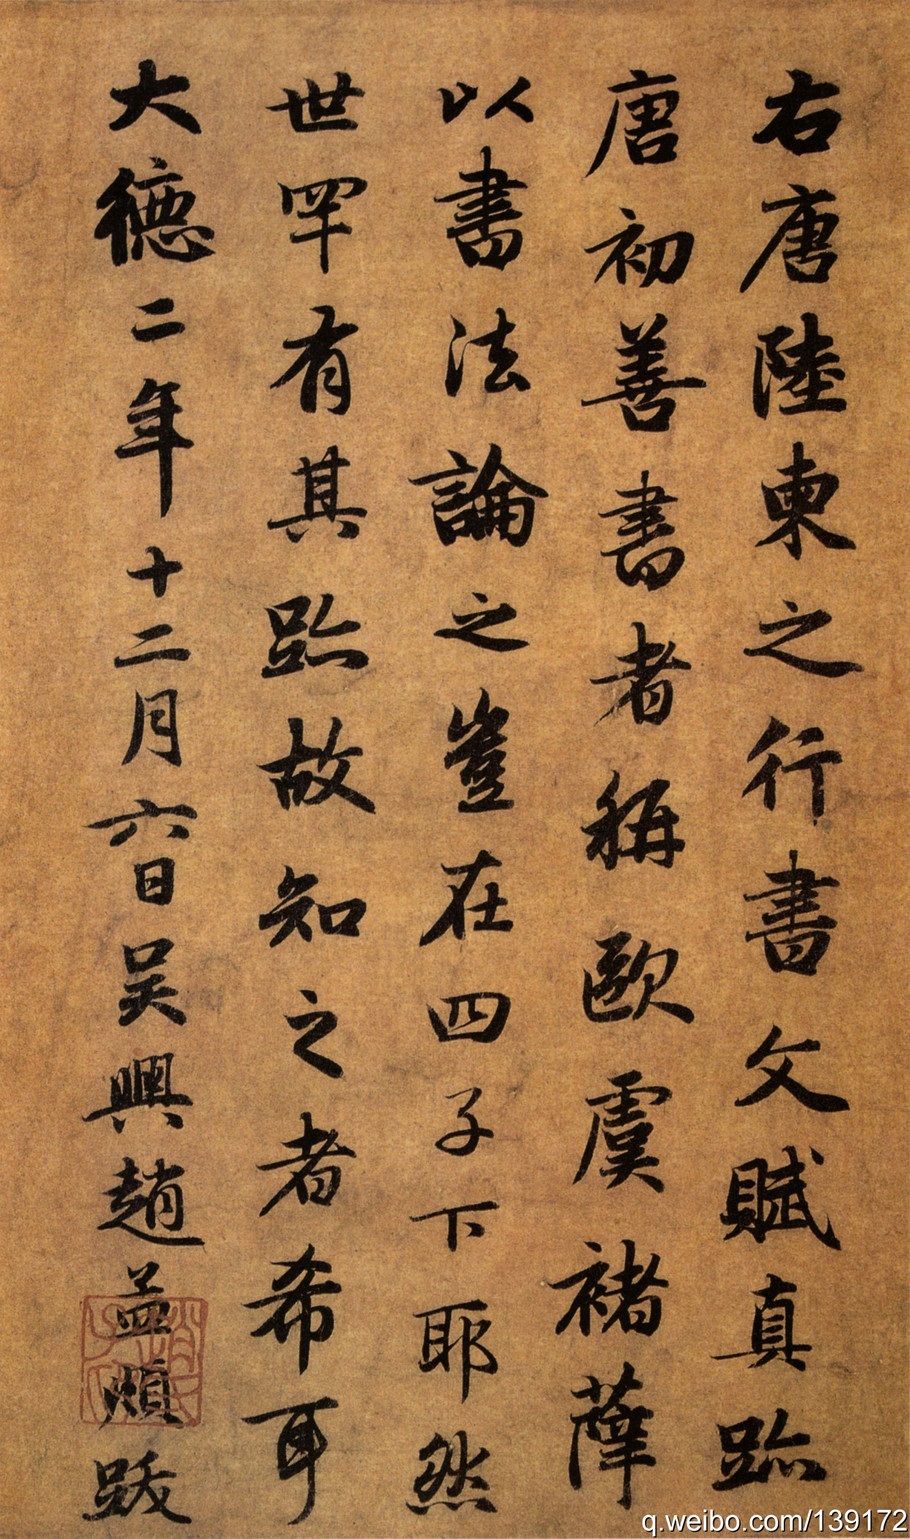 右唐陸柬之行書文賦真跡
唐初善書者稱歐虞褚薛
以書法論之豈在四子下耶然
世罕有其跡故知之者希耳
大德二年十二月六日吴興趙孟頫跋
q.weibo.com/139172